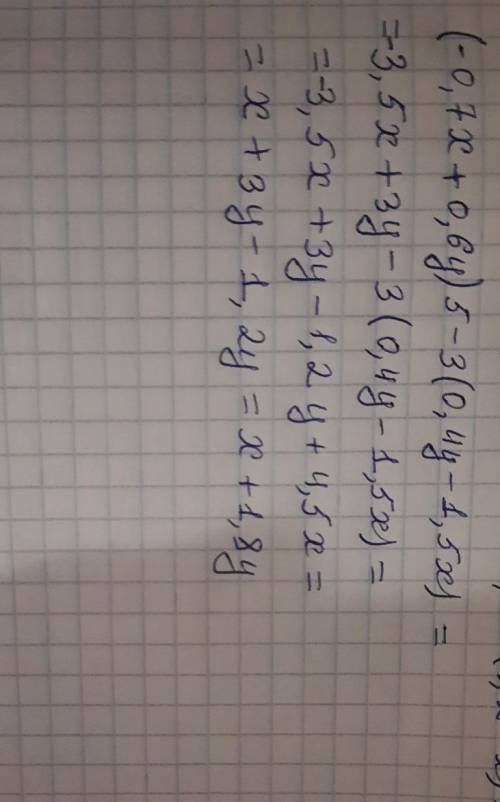 (-0,7x+0,6y)5-3(0,4y-1,5x)=
=-3,5x+3y-3(0,4y-1,5x)=
=-3,5x+3y-1,2y+4,5x=
=x+3y-1,2y=x+1,8y